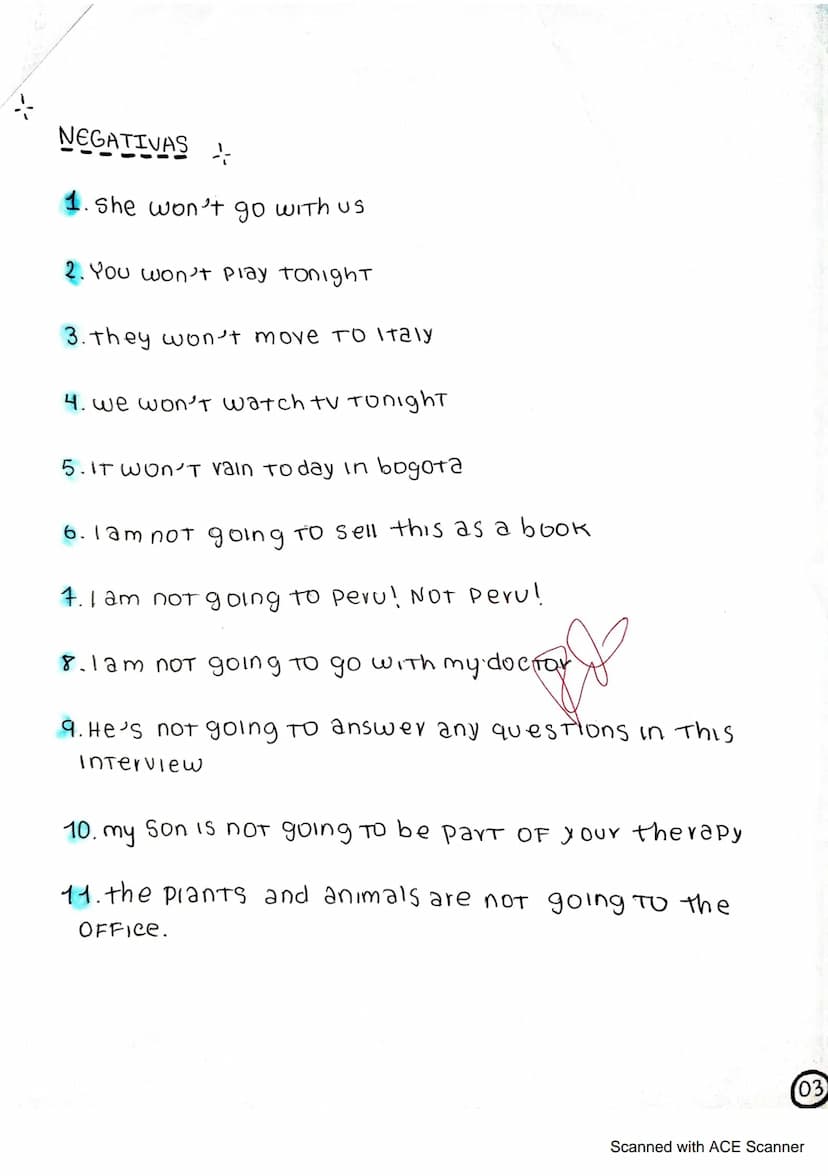 NEGATIVAS
1. She won't go with us
2. You won't play tonight
3. they won't move to Italy
4. we won't watch tv tonight
5. It won't rain today in bogota
6. I am not going to sell this as a book
7. I am not going to peru! Not peru!
8. I am not going to go with my doctor
9. He's not going to answer any questions in this
interview
10. my son is not going to be part of your therapy
11. the plants and animals are not going to the
office.
03
Scanned with ACE Scanner